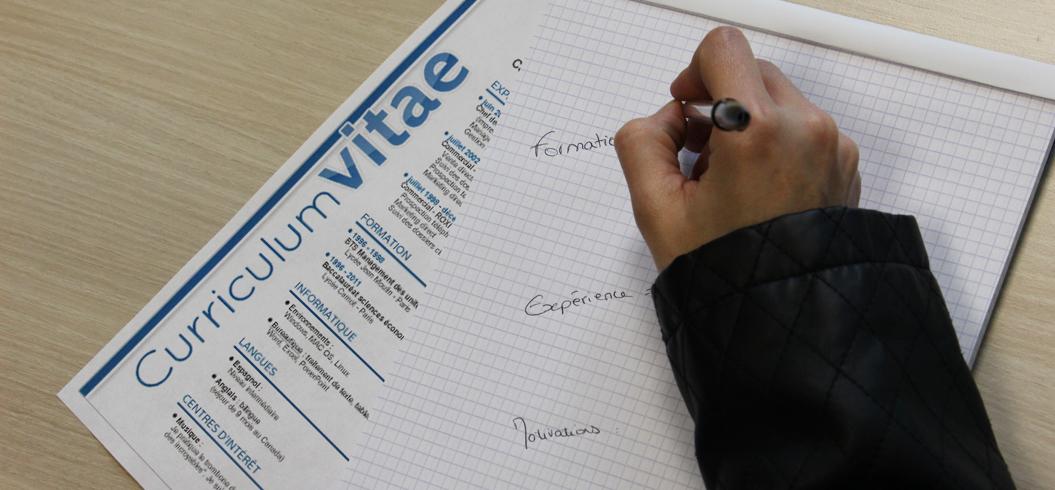 Curriculum vitae
EXP.
• juin 2
Chef de
• juillet 2002
Commercial -
Vente direct
Suivi des dos
Prospection t
Marketing dire
• juillet 1998 - déce
Commercial - ROXI
Prospection téléph
Marketing direct
Suivi des dossiers cl
FORMATION
• 1996 - 1998
BTS Management des unit
Lycée Jean Moulin - Paris
• 1996 - 2011
Baccalauréat sciences économ
Lycée Carnot - Paris
INFORMATIQUE
• Environnements :
Windows, MAC OS, Linux
• Bureautique : traitement de texte, table
Word, Excel, PowerPoint
LANGUES
• Espagnol :
Niveau intermédiaire
• Anglais : bilingue
(séjour de 9 mois au Canada)
CENTRES D'INTÉRÊT
• Musique :
Je pratique le trombone d
des incroyables". Je sui
Formatio
Expérience
Motivations